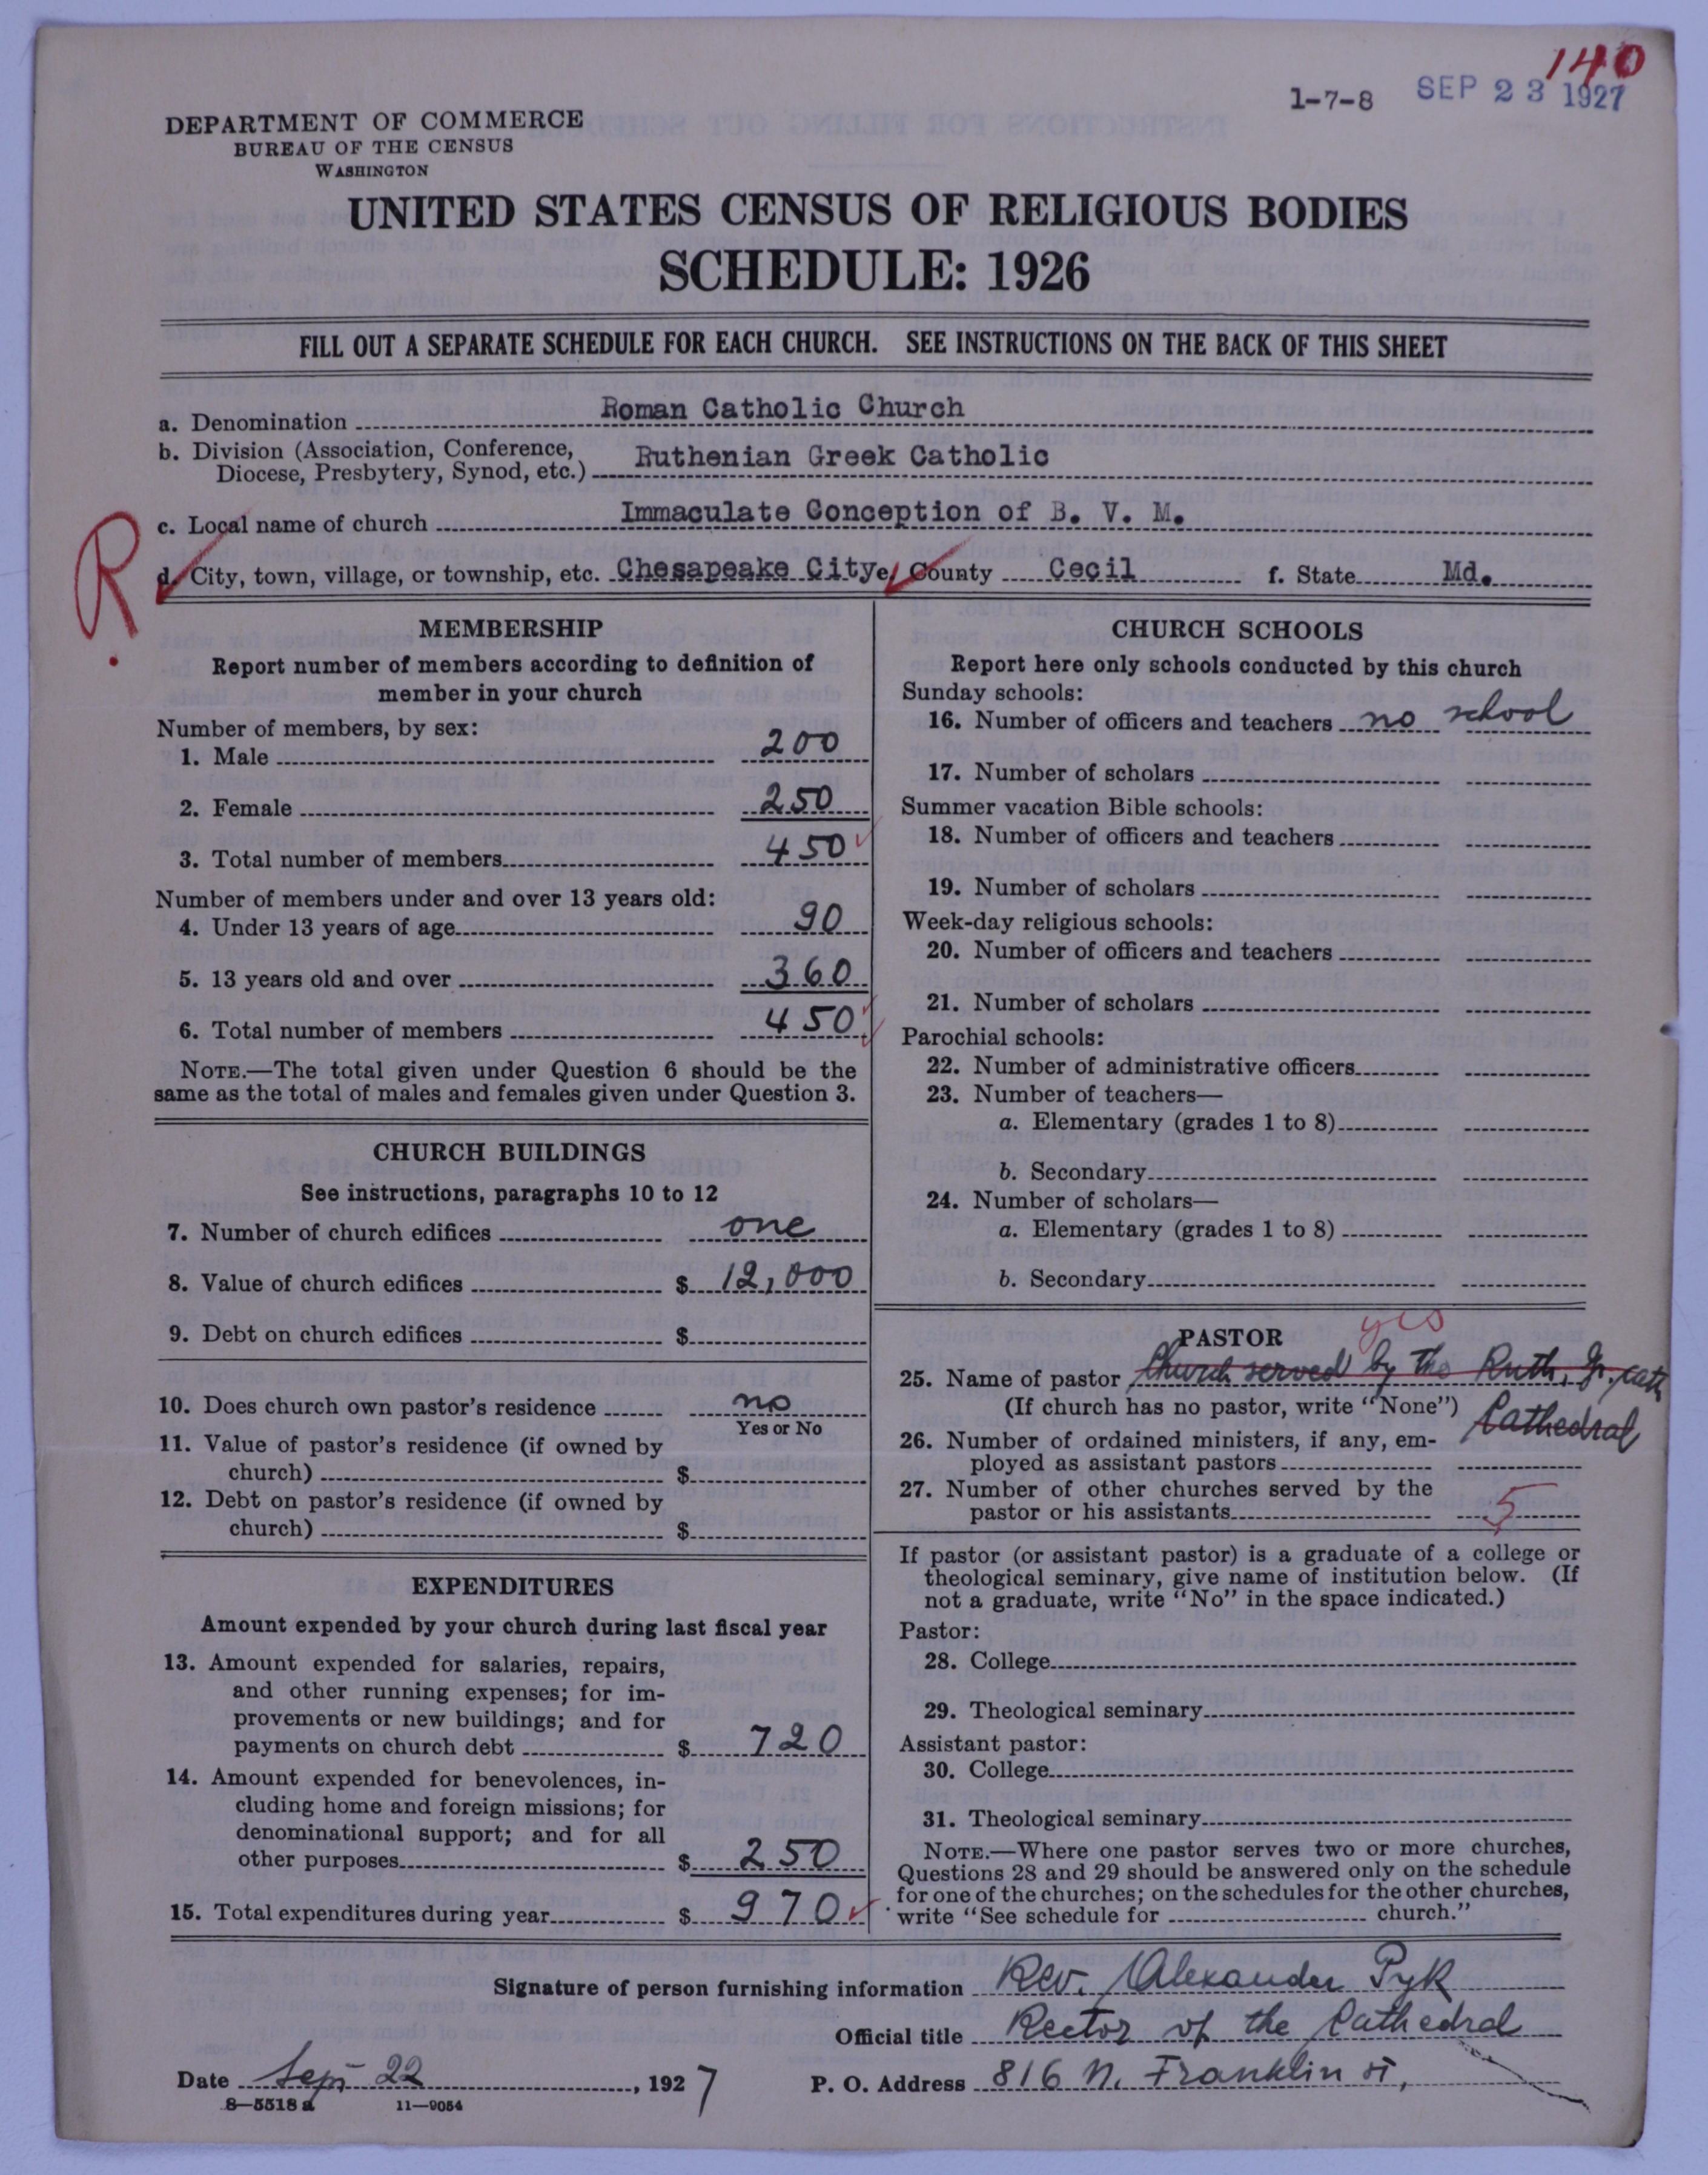 140
1-7-8 SEP 23 1927
DEPARTMENT OF COMMERCE
BUREAU OF THE CENSUS
WASHINGTON
UNITED STATES CENSUS OF RELIGIOUS BODIES
SCHEDULE: 1926
FILL OUT A SEPARATE SCHEDULE FOR EACH CHURCH. SEE INSTRUCTIONS ON THE BACK OF THIS SHEET
a. Denomination Roman Catholic Church
b. Division (Association, Conference,
Diocese, Presbytery, Synod, etc.) Ruthenian Greek Catholic
c. Local name of church Immaculate Conception of B. V. M.
R.
d. City, town, village, or township, etc. Chesapeake City e. County Cecil f. State Md.
MEMBERSHIP
Report number of members according to definition of
member in your church
Number of members, by sex:
1. Male 200
2. Female 250
3. Total number of members 450
Number of members under and over 13 years old:
4. Under 13 years of age 90
5. 13 years old and over 360
6. Total number of members 450
NOTE.—The total given under Question 6 should be the
same as the total of males and females given under Question 3.
CHURCH BUILDINGS
See instructions, paragraphs 10 to 12
7. Number of church edifices one
8. Value of church edifices $ 12,000
9. Debt on church edifices $
10. Does church own pastor's residence no
Yes or No
11. Value of pastor's residence (if owned by
church) $
12. Debt on pastor's residence (if owned by
church) $
EXPENDITURES
Amount expended by your church during last fiscal year
13. Amount expended for salaries, repairs,
and other running expenses; for im-
provements or new buildings; and for
payments on church debt $ 720
14. Amount expended for benevolences, in-
cluding home and foreign missions; for
denominational support; and for all
other purposes $ 250
15. Total expenditures during year $ 970
CHURCH SCHOOLS
Report here only schools conducted by this church
Sunday schools:
16. Number of officers and teachers no school
17. Number of scholars
Summer vacation Bible schools:
18. Number of officers and teachers
19. Number of scholars
Week-day religious schools:
20. Number of officers and teachers
21. Number of scholars
Parochial schools:
22. Number of administrative officers
23. Number of teachers—
a. Elementary (grades 1 to 8)
b. Secondary
24. Number of scholars—
a. Elementary (grades 1 to 8)
b. Secondary
PASTOR yes
25. Name of pastor Church served by the Ruth. Gr. Cath
(If church has no pastor, write "None") Cathedral
26. Number of ordained ministers, if any, em-
ployed as assistant pastors
27. Number of other churches served by the
pastor or his assistants 5
If pastor (or assistant pastor) is a graduate of a college or
theological seminary, give name of institution below. (If
not a graduate, write "No" in the space indicated.)
Pastor:
28. College
29. Theological seminary
Assistant pastor:
30. College
31. Theological seminary
NOTE.—Where one pastor serves two or more churches,
Questions 28 and 29 should be answered only on the schedule
for one of the churches; on the schedules for the other churches,
write "See schedule for church."
Signature of person furnishing information Rev. Alexander Pyk
Official title Rector of the Cathedral
Date Sep 22, 1927 P. O. Address 816 N. Franklin st,
8—5518 a 11—9054